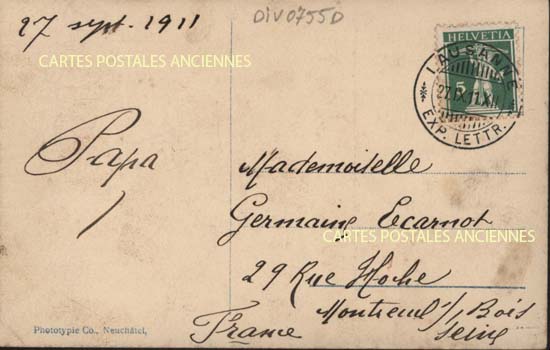 27 sept. 1911
DIV0755D
CARTES POSTALES ANCIENNES
HELVETIA
5
LAUSANNE
27.IX.11.XI
EXP. LETTR.
Papa
Mademoiselle
Germaine Ecarnot
CARTES POSTALES ANCIENNES
29 Rue Hoche
Montreuil s/ Bois
France Seine
Phototypie Co., Neuchâtel.